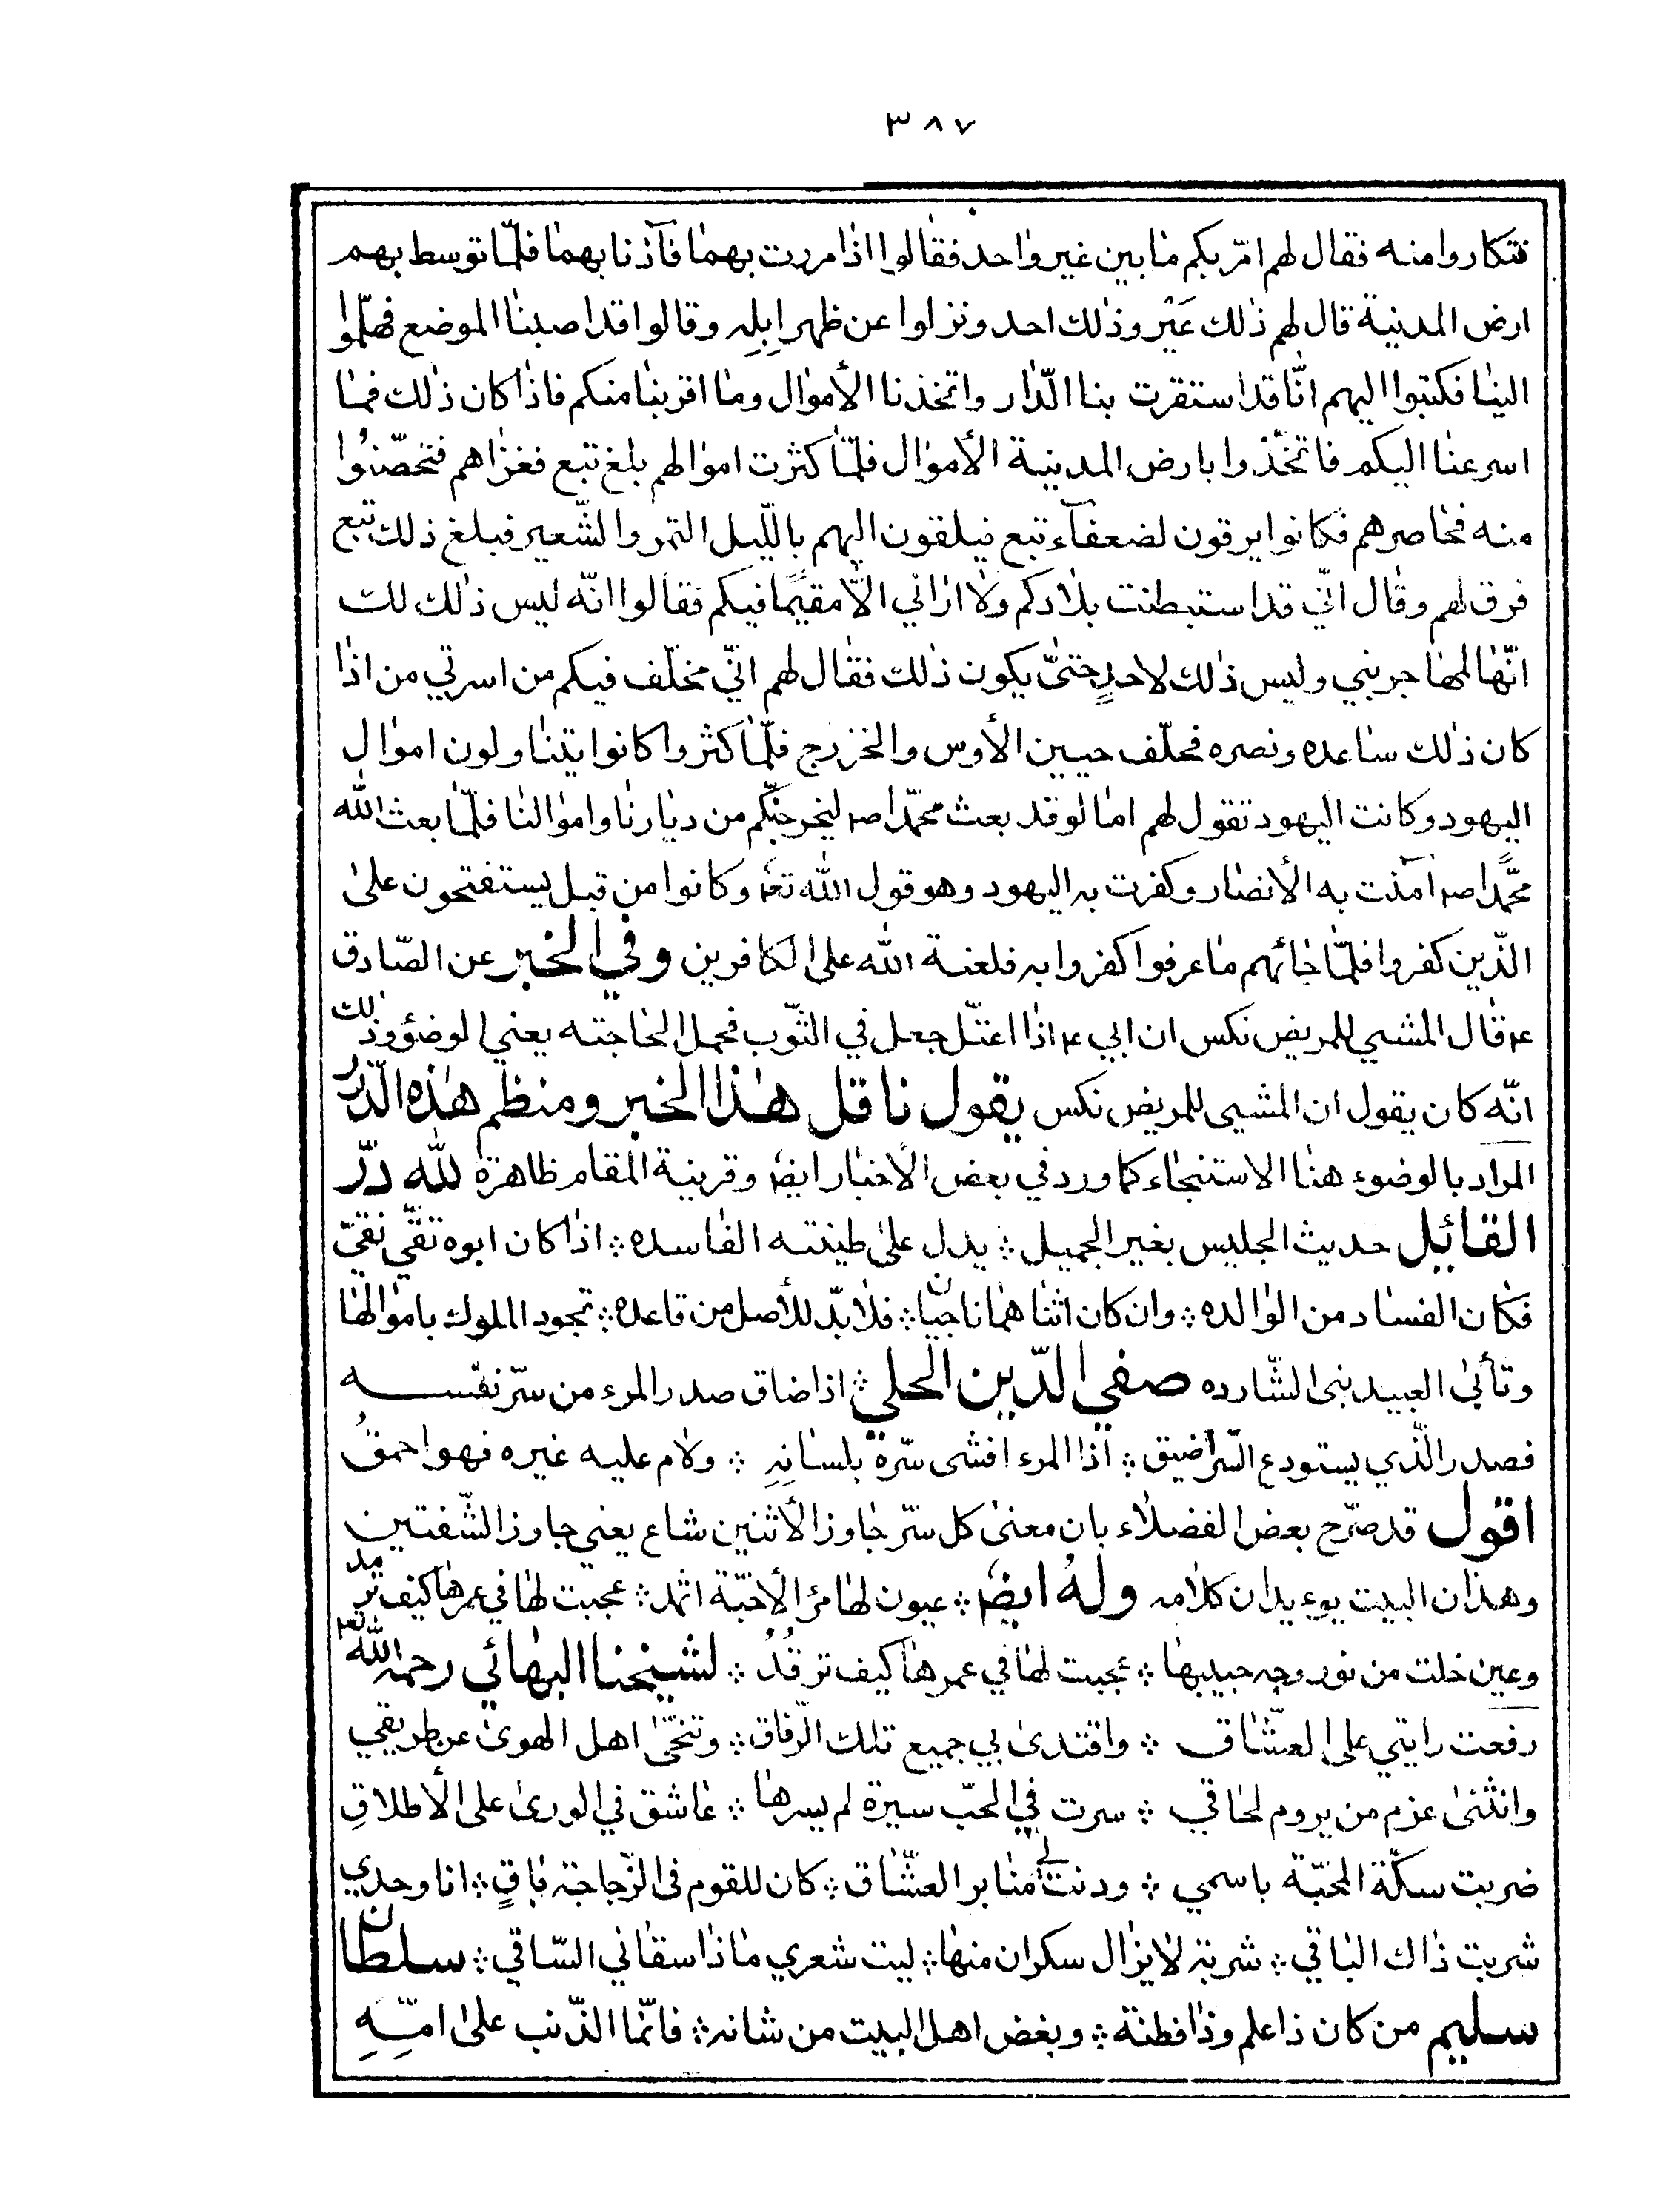 ٣٨٧
فتكاروا منه فقال لهم امّر بكم ما بين غير واحد فقالوا اذا مررت بهما فآذنا بهما فلمّا توسط بهم
ارض المدينة قال لهم ذلك عَيْر وذلك احد ونزلوا عن ظهر اِبِلِه وقالوا قد اصبنا الموضع فهلمّوا
الينا فكتبوا اليهم انّا قد استقرت بنا الدّار واتخذنا الأموال وما اقربنا منكم فاذا كان ذلك فما
اسرعنا اليكم فاتخّذوا بارض المدينة الأموال فلمّا كثرت اموالهم بلغ تبع فغزاهم فتحصّنُوا
منه فحاصرهم فكانوا يرقون لضعفآء تبع فيلقون اليهم بالليّل التمر والشّعير فبلغ ذلك تبع
فرق لهم وقال انّي قد استبطنت بلادكم ولا اراني الّا مقيمًا فيكم فقالوا انّه ليس ذلك لك
انّها لمهاجر نبي وليس ذلك لاحدٍ حتىّ يكون ذلك فقال لهم انّي مخلّف فيكم من اسرتي من اذا
كان ذلك ساعده ونصره فخلّف حيين الأوس والخزرج فلمّا كثروا كانوا يتناولون اموال
اليهود وكانت اليهود تقول لهم اما لو قد بعث محمّدا صۤ ليخرجنّكم من ديارنا واموالنا فلمّا بعث الله
محمَّدًا صۤ آمنت به الأنصار وكفرت به اليهود وهو قول الله تعۤ وكانوا من قبل يستفتحون على
الذّين كفروا فلمّا جائهم ما عرفوا كفروا به فلعنة الله على الكافرين وفي الخبر عن الصّادق
عۤ قال المشي للمريض نكس ان ابي عۤ اذا اعتل جعل في الثّوب فحمل لحاجته يعني الوضؤ وذلك
انّه كان يقول ان المشي للمريض نكس يقول ناقل هذا الخبر ومنظم هذه الدّرر
المراد بالوضوء هنا الاستنجاء كما ورد في بعض الأخبار ايضۤ وقرينة المقام ظاهرة لله درّ
القائيل حديث الجليس بغير الجميل ؞ يدل على طينته الفاسده ؞ اذا كان ابوه تقّي نقيّ
فكان الفساد من الوالده ؞ وان كان اثناهما ناجيان ؞ فلا بدّ للأصل من قاعده ؞ تجود الملوك باموالها
وتأبى العبيد بنى الشّارده صفي الدّين الحلي ؞ اذا ضاق صدر المرء من سرّ نفسه
فصدر الذّي يستودع السّر اضيق ؞ اذا المرء افشى سرّه بلسانِهِ ؞ ولام عليه غيره فهو احمقُ
اقول قد صرّح بعض الفضلاء بان معنى كل سرّ جاوز الأثنين شاع يعني جاوز الشّفتين
وهذان البيت يوء يدان كلامه وله ايضۤ ؞ عيون لها مرٔ الأحبّة اثمد ؞ عجبت لها في عمرها كيف ترمد
وعين خلت من نور وجه حبيبها ؞ عجبت لها في عمرها كيف ترقُدُ ؞ لشيخنا البهائي رحمه الله تعۤ
رفعت رايتي على العشّاق ؞ واقتدى بي جميع تلك الرّفاق ؞ وتنحّى اهل الهوى عن طريقي
وانثنى عزم من يروم لحاقي ؞ سرت في الحبّ سيرة لم يسرها ؞ عاشق في الورى على الأطلاقِ
ضربت سكّة المحبّة باسمي ؞ ودنت لي منابر العشّاق ؞ كان للقوم في الزّجاجة باقٍ ؞ انا وحدي
شربت ذاك الباقي ؞ شربة لا يزال سكران منها ؞ ليت شعري ماذا سقاني السّاقي ؞ سلطان
سليم من كان ذا علم وذا فطنة ؞ وبغض اهل البيت من شانه ؞ فانّما الذّنب على امّهِ